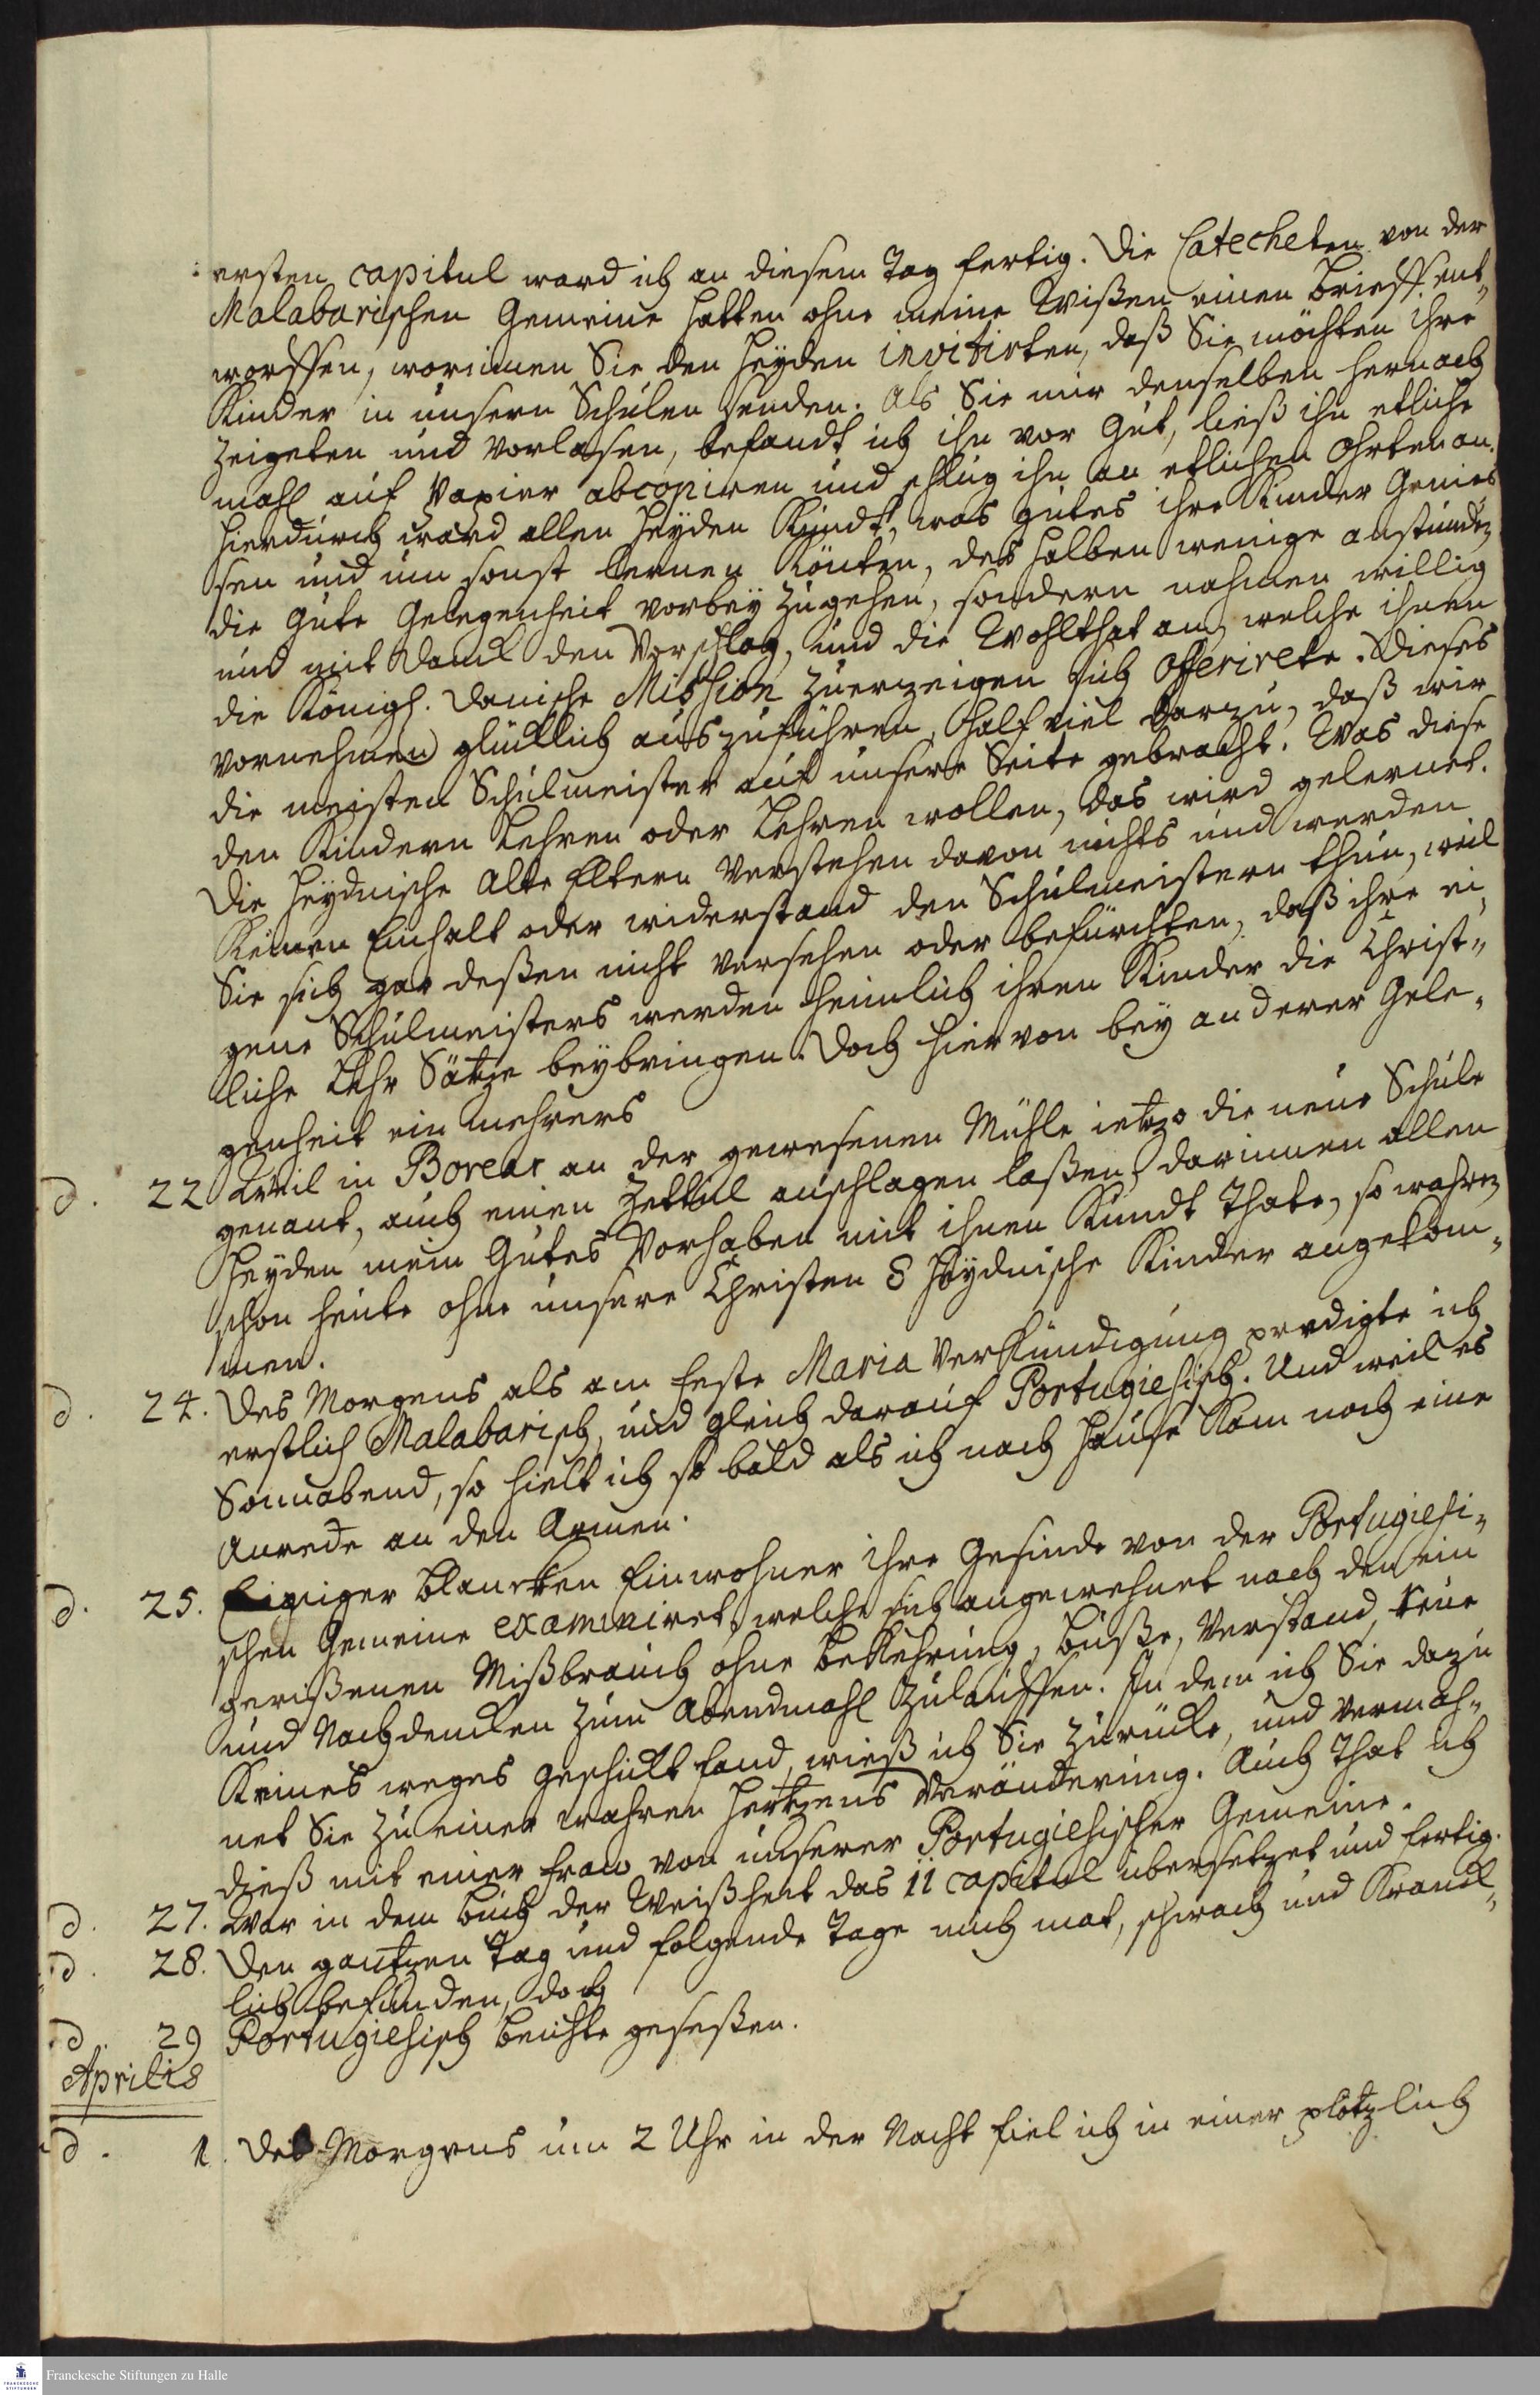 ersten capitul ward ich an diesem Tag fertig. Die Catecheten von der
Malabarischen Gemeine hatten ohne meine Wißen einen Brieff ent-
worffen, worinnen Sie den Heyden invitirten, daß Sie möchten ihre
Kinder in unsern Schulen senden. Als Sie mir denselben hernach
zeigeten und vorlasen, befandt ich ihn vor gut, ließ ihn etliche
mahl auf Papier abcopiren und schlug ihn an etlichen Ohrten an.
Hierdurch ward allen Heyden Kundt, was gutes ihre Kinder genies
sen und um sonst lernen Könten, des halben wenige anstunden
die gute Gelegenheit vorbey zugehen, sondern nahmen willig
und mit Danck den Vorschlag, und die Wohlthat an, welche ihnen
die Königl. Danische Mission zuerzeigen sich offerirete. Dieses
vornehmen glücklich auszuführen, half viel darzu, daß wir
die meisten Schulmeister auf unsere Seite gebracht. Was diese
den Kindern Lehren oder Lehren wollen, das wird gelernet.
Die Heydnische alte Eltern verstehen davon nichts und werden
Keinen Einhalt oder widerstand den Schulmeistern thun, weil
Sie sich gar deßen nicht versehen oder befürchten, daß ihre ei-
gene Schulmeisters werden heimlich ihren Kinder die Christ-
liche Lehr Sätze beybringen. Doch hiervon bey anderer Gele-
genheit ein mehrers
d. 22 Weil in Borear an der gewesenen Mühle ietzo die neue Schule
genant, auch einen Zettul anschlagen laßen, darinnen allen
Heyden mein gutes Vorhaben mit ihnen Kundt thate, so wahren
schon heute ohne unsere Christen 8 Heydnische Kinder angekom-
men.
d. 24. Des Morgens als am Feste Maria Verkündigung predigte ich
erstlich Malabarisch, und gleich darauf Portugiesisch. Und weil es
Sonnabend, so hielt ich so bald als ich nach Hause Kam noch eine
Anrede an den Armen.
d. 25. Einiger Blancken Einwohner ihre Gesinde von der Portugiesi-
schen Gemeine examiniret, welche sich angewehnet nach den ein
gerißenen Mißbrauch ohne Bekehrung, Buße, Verstand, Reue
und Nachdencken zum Abendmahl zulauffen. In dem ich Sie dazu
Keines weges geschickt fand, wieß ich Sie zurücke, und vermah-
net Sie zu einer wahren Hertzens Veränderung. Auch that ich
dieß mit einer Frau von unserer Portugiesischer Gemeine.
d. 27. War in dem Buch der Weißheit das 11 capitul übersetzet und fertig.
d. 28. Den gantzen Tag und folgende Tage mich mat, schwach und Kranck-
lich befunden, doch
d. 29 Portugiesisch Beichte geseßen.
Aprilis
d. 1. Des Morgens um 2 Uhr in der Nacht fiel ich in einer plötzlich
Franckesche Stiftungen zu Halle